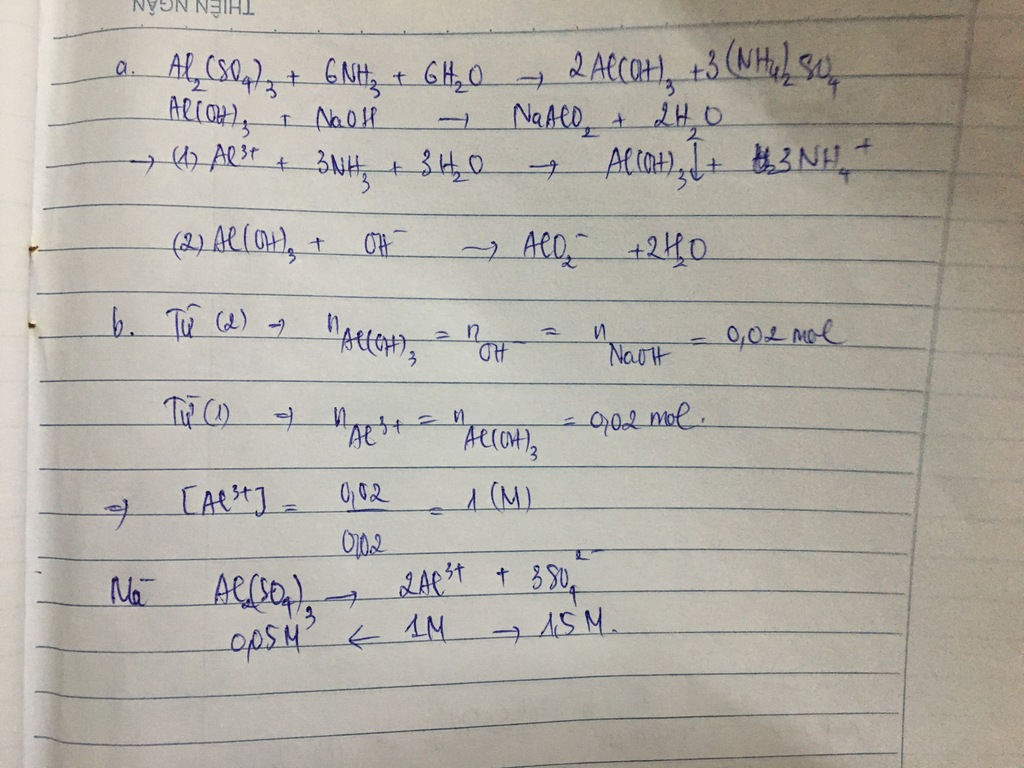 THIÊN NGÂN
a. Al₂(SO₄)₃ + 6NH₃ + 6H₂O → 2Al(OH)₃ + 3(NH₄)₂SO₄
Al(OH)₃ + NaOH → NaAlO₂ + 2H₂O
→ (1) Al³⁺ + 3NH₃ + 3H₂O → Al(OH)₃↓ + 3NH₄⁺
(2) Al(OH)₃ + OH⁻ → AlO₂⁻ + 2H₂O
b. Từ (2) → n Al(OH)₃ = n OH⁻ = n NaOH = 0,02 mol
Từ (1) ⇒ n Al³⁺ = n Al(OH)₃ = 0,02 mol.
⇒ [Al³⁺] = 0,02 / 0,02 = 1 (M)
Mà Al₂(SO₄)₃ → 2Al³⁺ + 3SO₄²⁻
0,05M ← 1M → 1,5M.